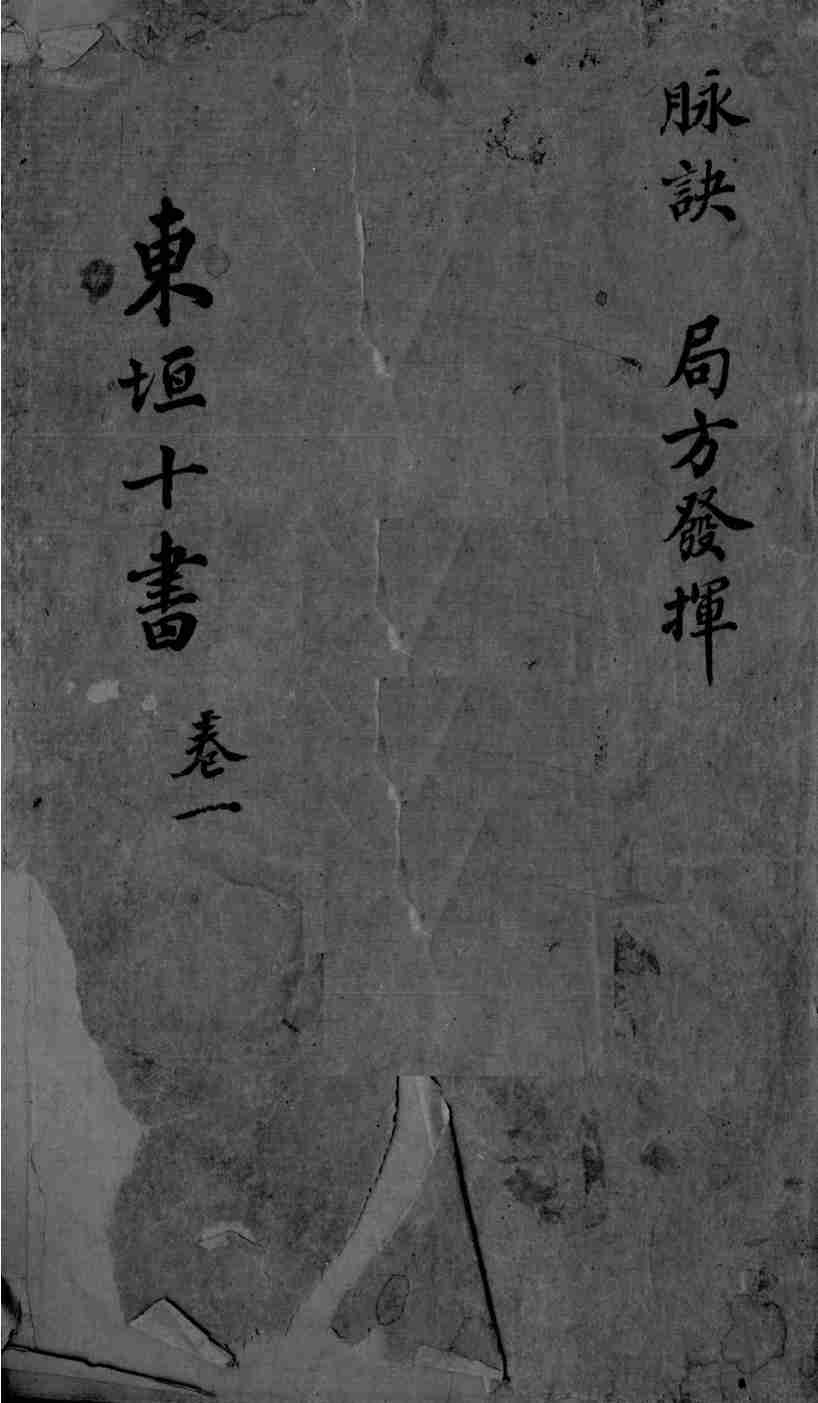 脉訣　局方發揮
東垣十書
卷一